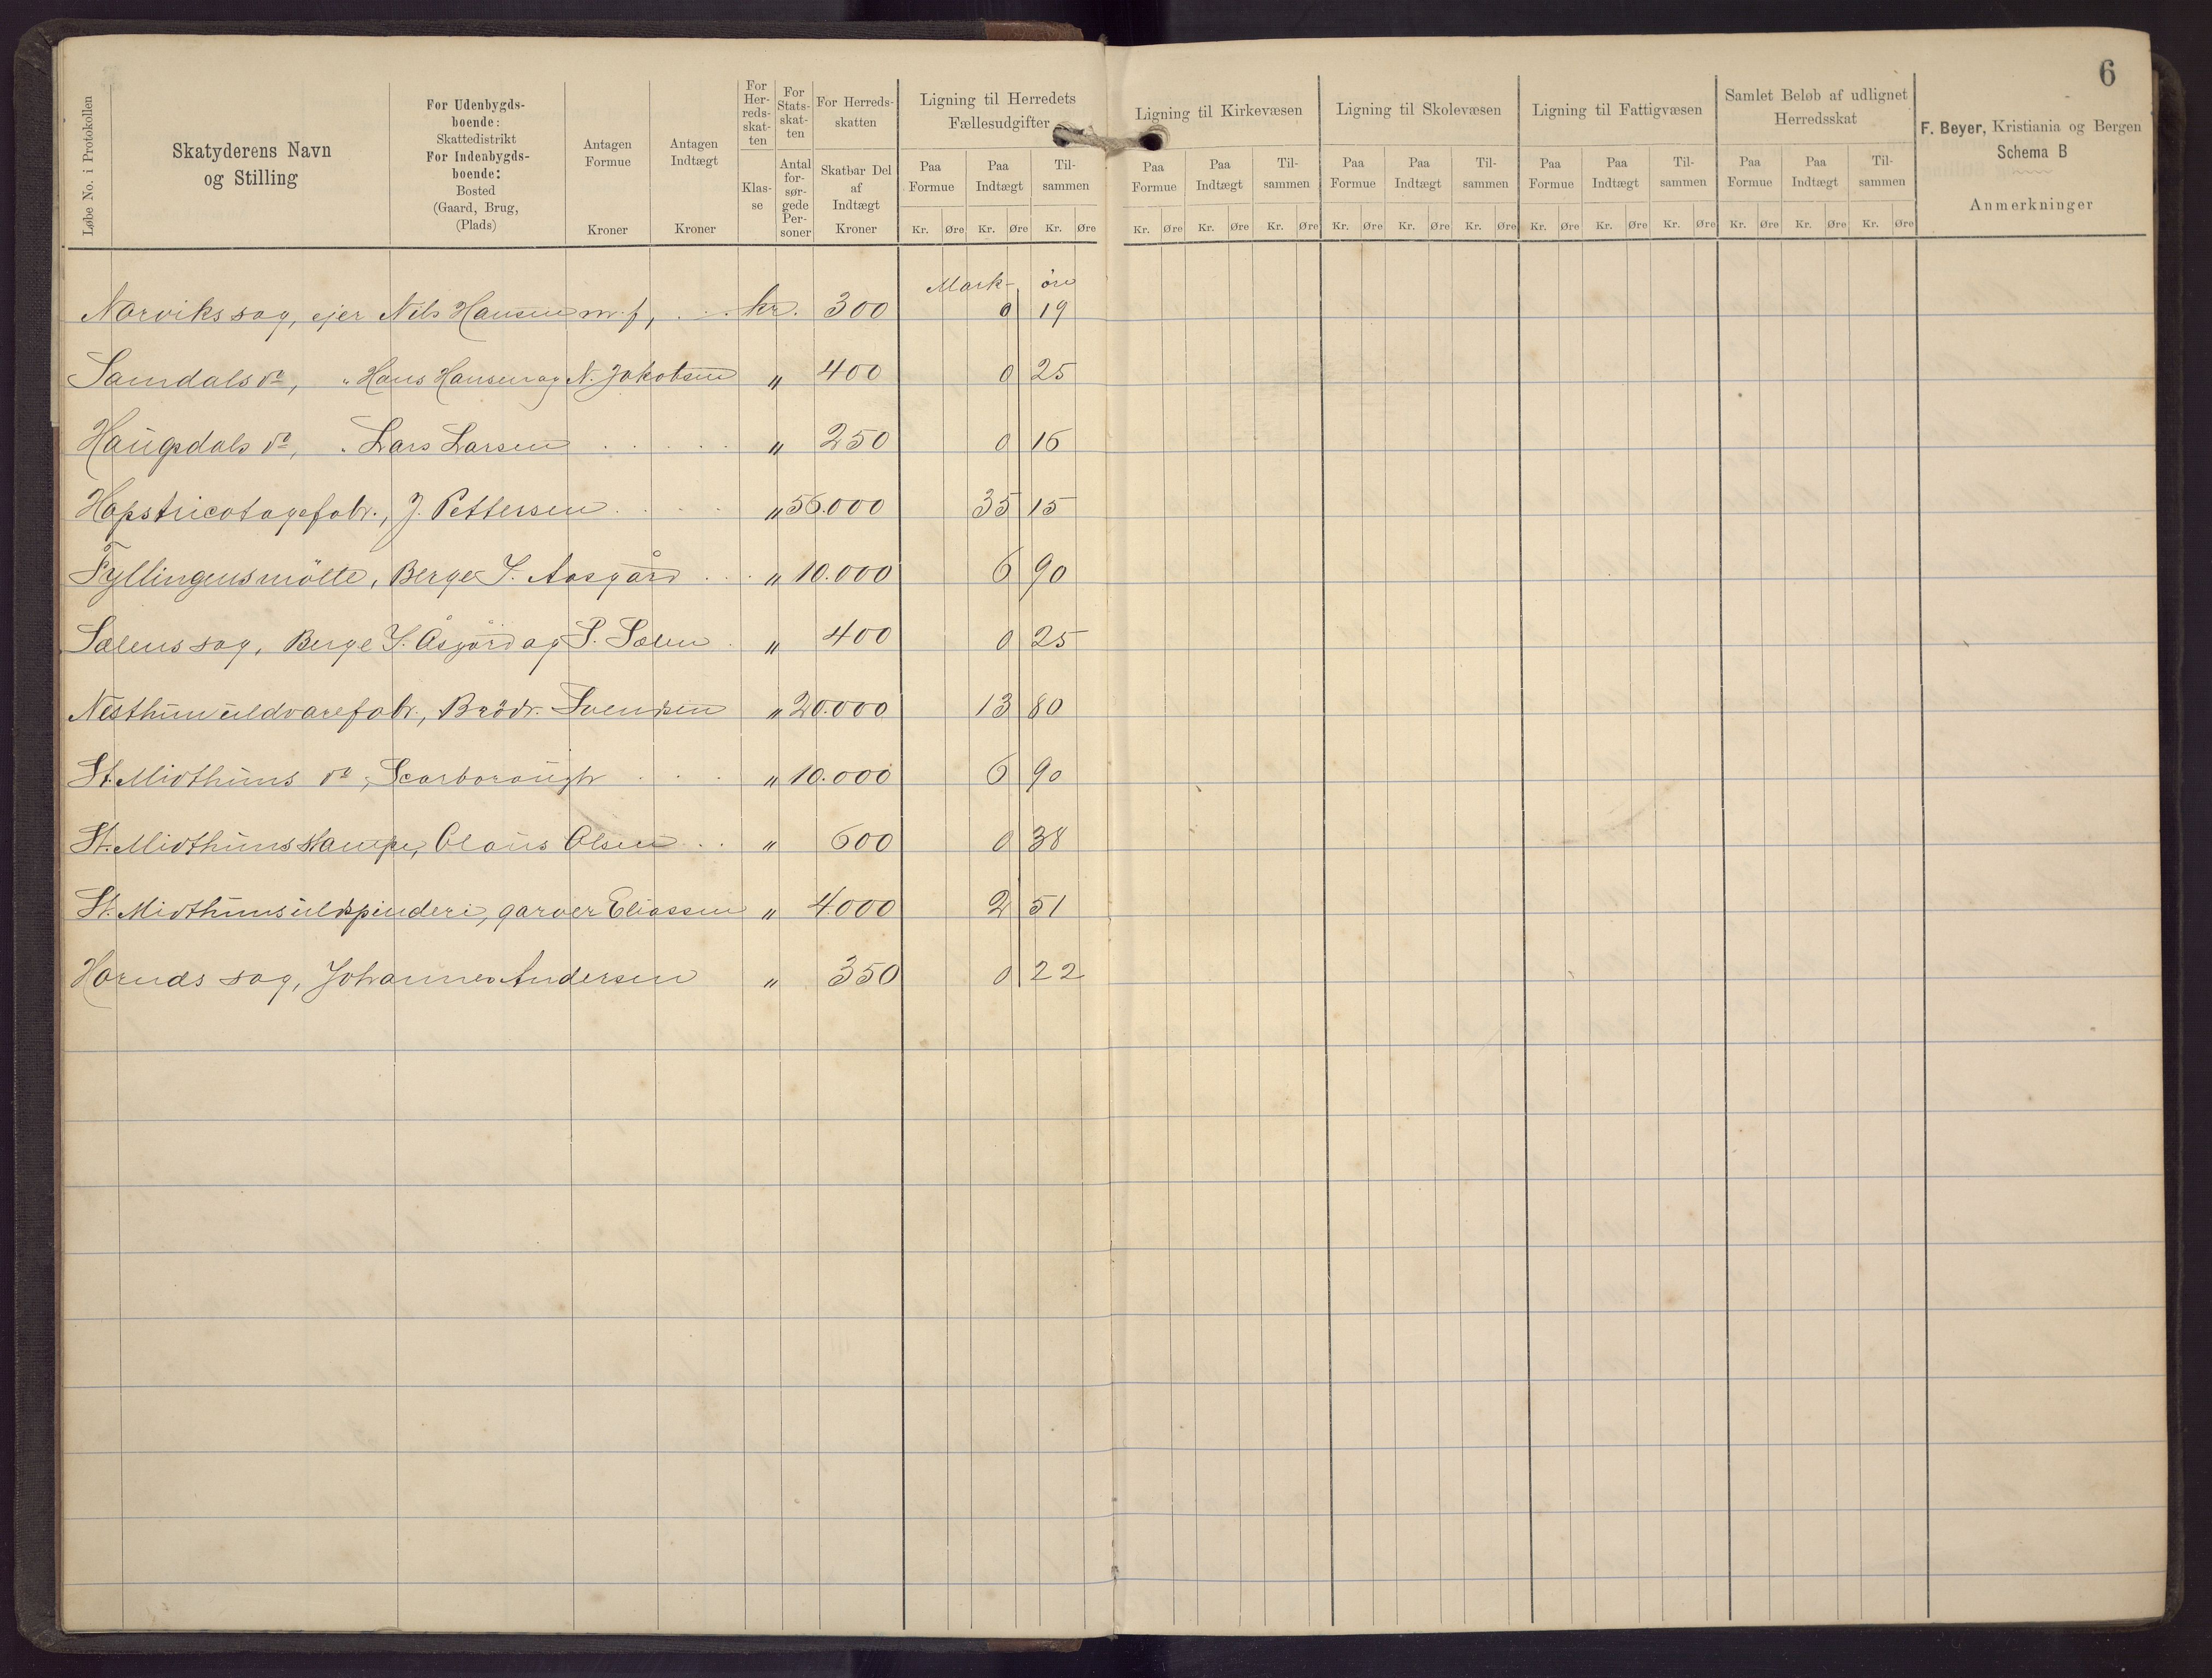 6
Løbe No. i Protokollen
Skatyderens Navn
og Stilling
For Udenbygds-
boende:
Skattedistrikt
For Indenbygds-
boende:
Bosted
(Gaard, Brug,
(Plads)
Antagen
Formue
Kroner
Antagen
Indtægt
Kroner
For
Her-
reds-
skat-
ten
Klas-
se
For
Stats-
skat-
ten
Antal
for-
sør-
gede
Per-
soner
For Herreds-
skatten
Skatbar Del
af
Indtægt
Kroner
Ligning til Herredets
Fællesudgifter
Paa
Formue
Paa
Indtægt
Til-
sammen
Kr. Øre Kr. Øre Kr. Øre
Ligning til Kirkevæsen
Paa
Formue
Paa
Indtægt
Til-
sammen
Kr. Øre Kr. Øre Kr. Øre
Ligning til Skolevæsen
Paa
Formue
Paa
Indtægt
Til-
sammen
Kr. Øre Kr. Øre Kr. Øre
Ligning til Fattigvæsen
Paa
Formue
Paa
Indtægt
Til-
sammen
Kr. Øre Kr. Øre Kr. Øre
Samlet Beløb af udlignet
Herredsskat
Paa
Formue
Paa
Indtægt
Til-
sammen
Kr. Øre Kr. Øre Kr. Øre
F. Beyer, Kristiania og Bergen
Schema B
Anmerkninger
Mark öre
Narvikssag, ejer Nils Hansen m. f, . . . kr. 300 0 19
Samdals do, " Hans Hansen og N. Jakobsen " 400 0 25
Haugsdals do, " Lars Larsen . . . . . " 250 0 16
Hopstricotagefabr., J. Pettersen . . . . " 56.000 35 15
Fyllingensmölle, Berge S. Aasgård . . . " 10.000 6 90
Sælens sag, Berge S. Åsgård og S. Sælen . " 400 0 25
Nesthun uldvarefabr., Brödr. Svendsen " 20.000 13 80
St. Midthuns do, Scarborough . . . " 10.000 6 90
St. Midthuns stampe, Olaus Olsen . . " 600 0 38
St. Midthuns uldspinderi, garver Eliassen " 4.000 2 51
Hornæs sag, Johannes Andersen " 350 0 22